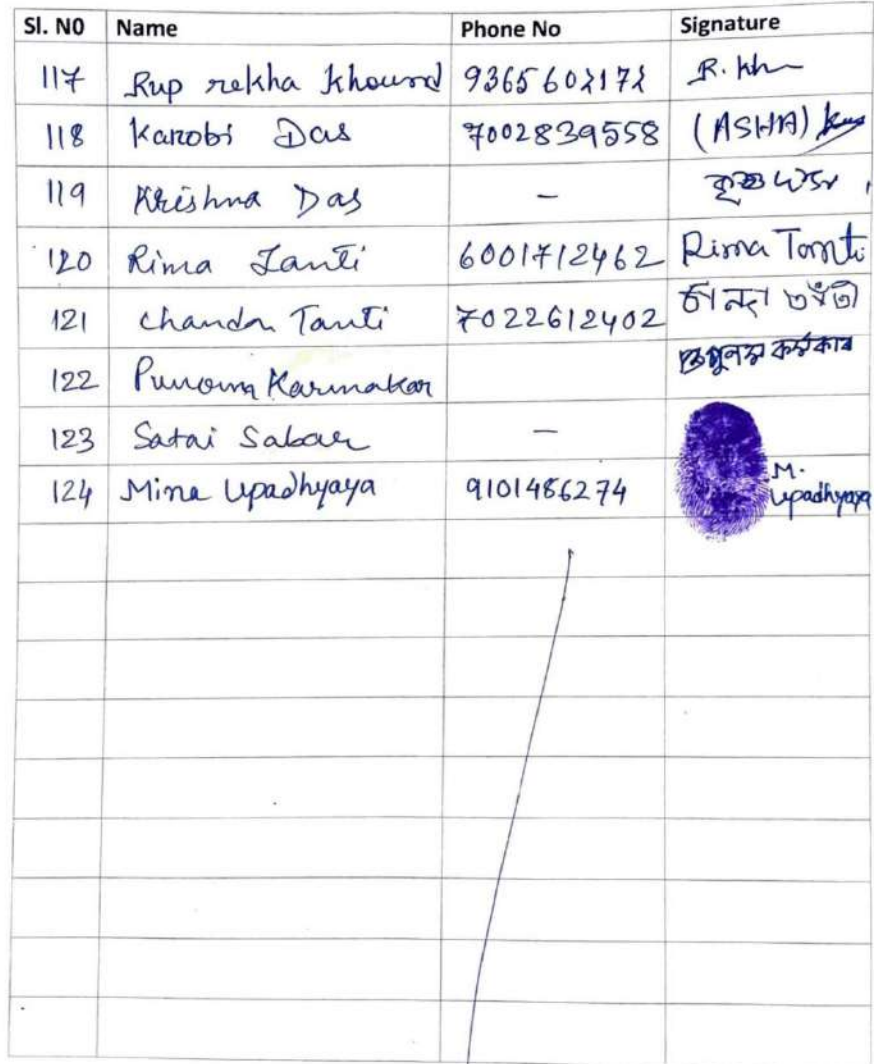 Sl. N0 Name Phone No Signature
117 Rup rekha Khound 9365602172 R. Kh
118 Karobi Das 7002839558 (ASHA)
119 Krishna Das –
120 Rima Tanti 6001712462 Rima Tanti
121 Chanda Tanti 7022612402 চান্দা তাঁতী
122 Punam Karmakar কৰ্মকাৰ
123 Satai Sabar –
124 Mina Upadhyaya 9101486274 M. Upadhyaya